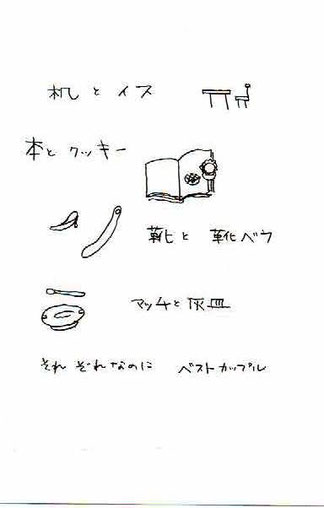 机とイス
本とクッキー
靴と靴ベラ
マッチと灰皿
それぞれなのに ベストカップル